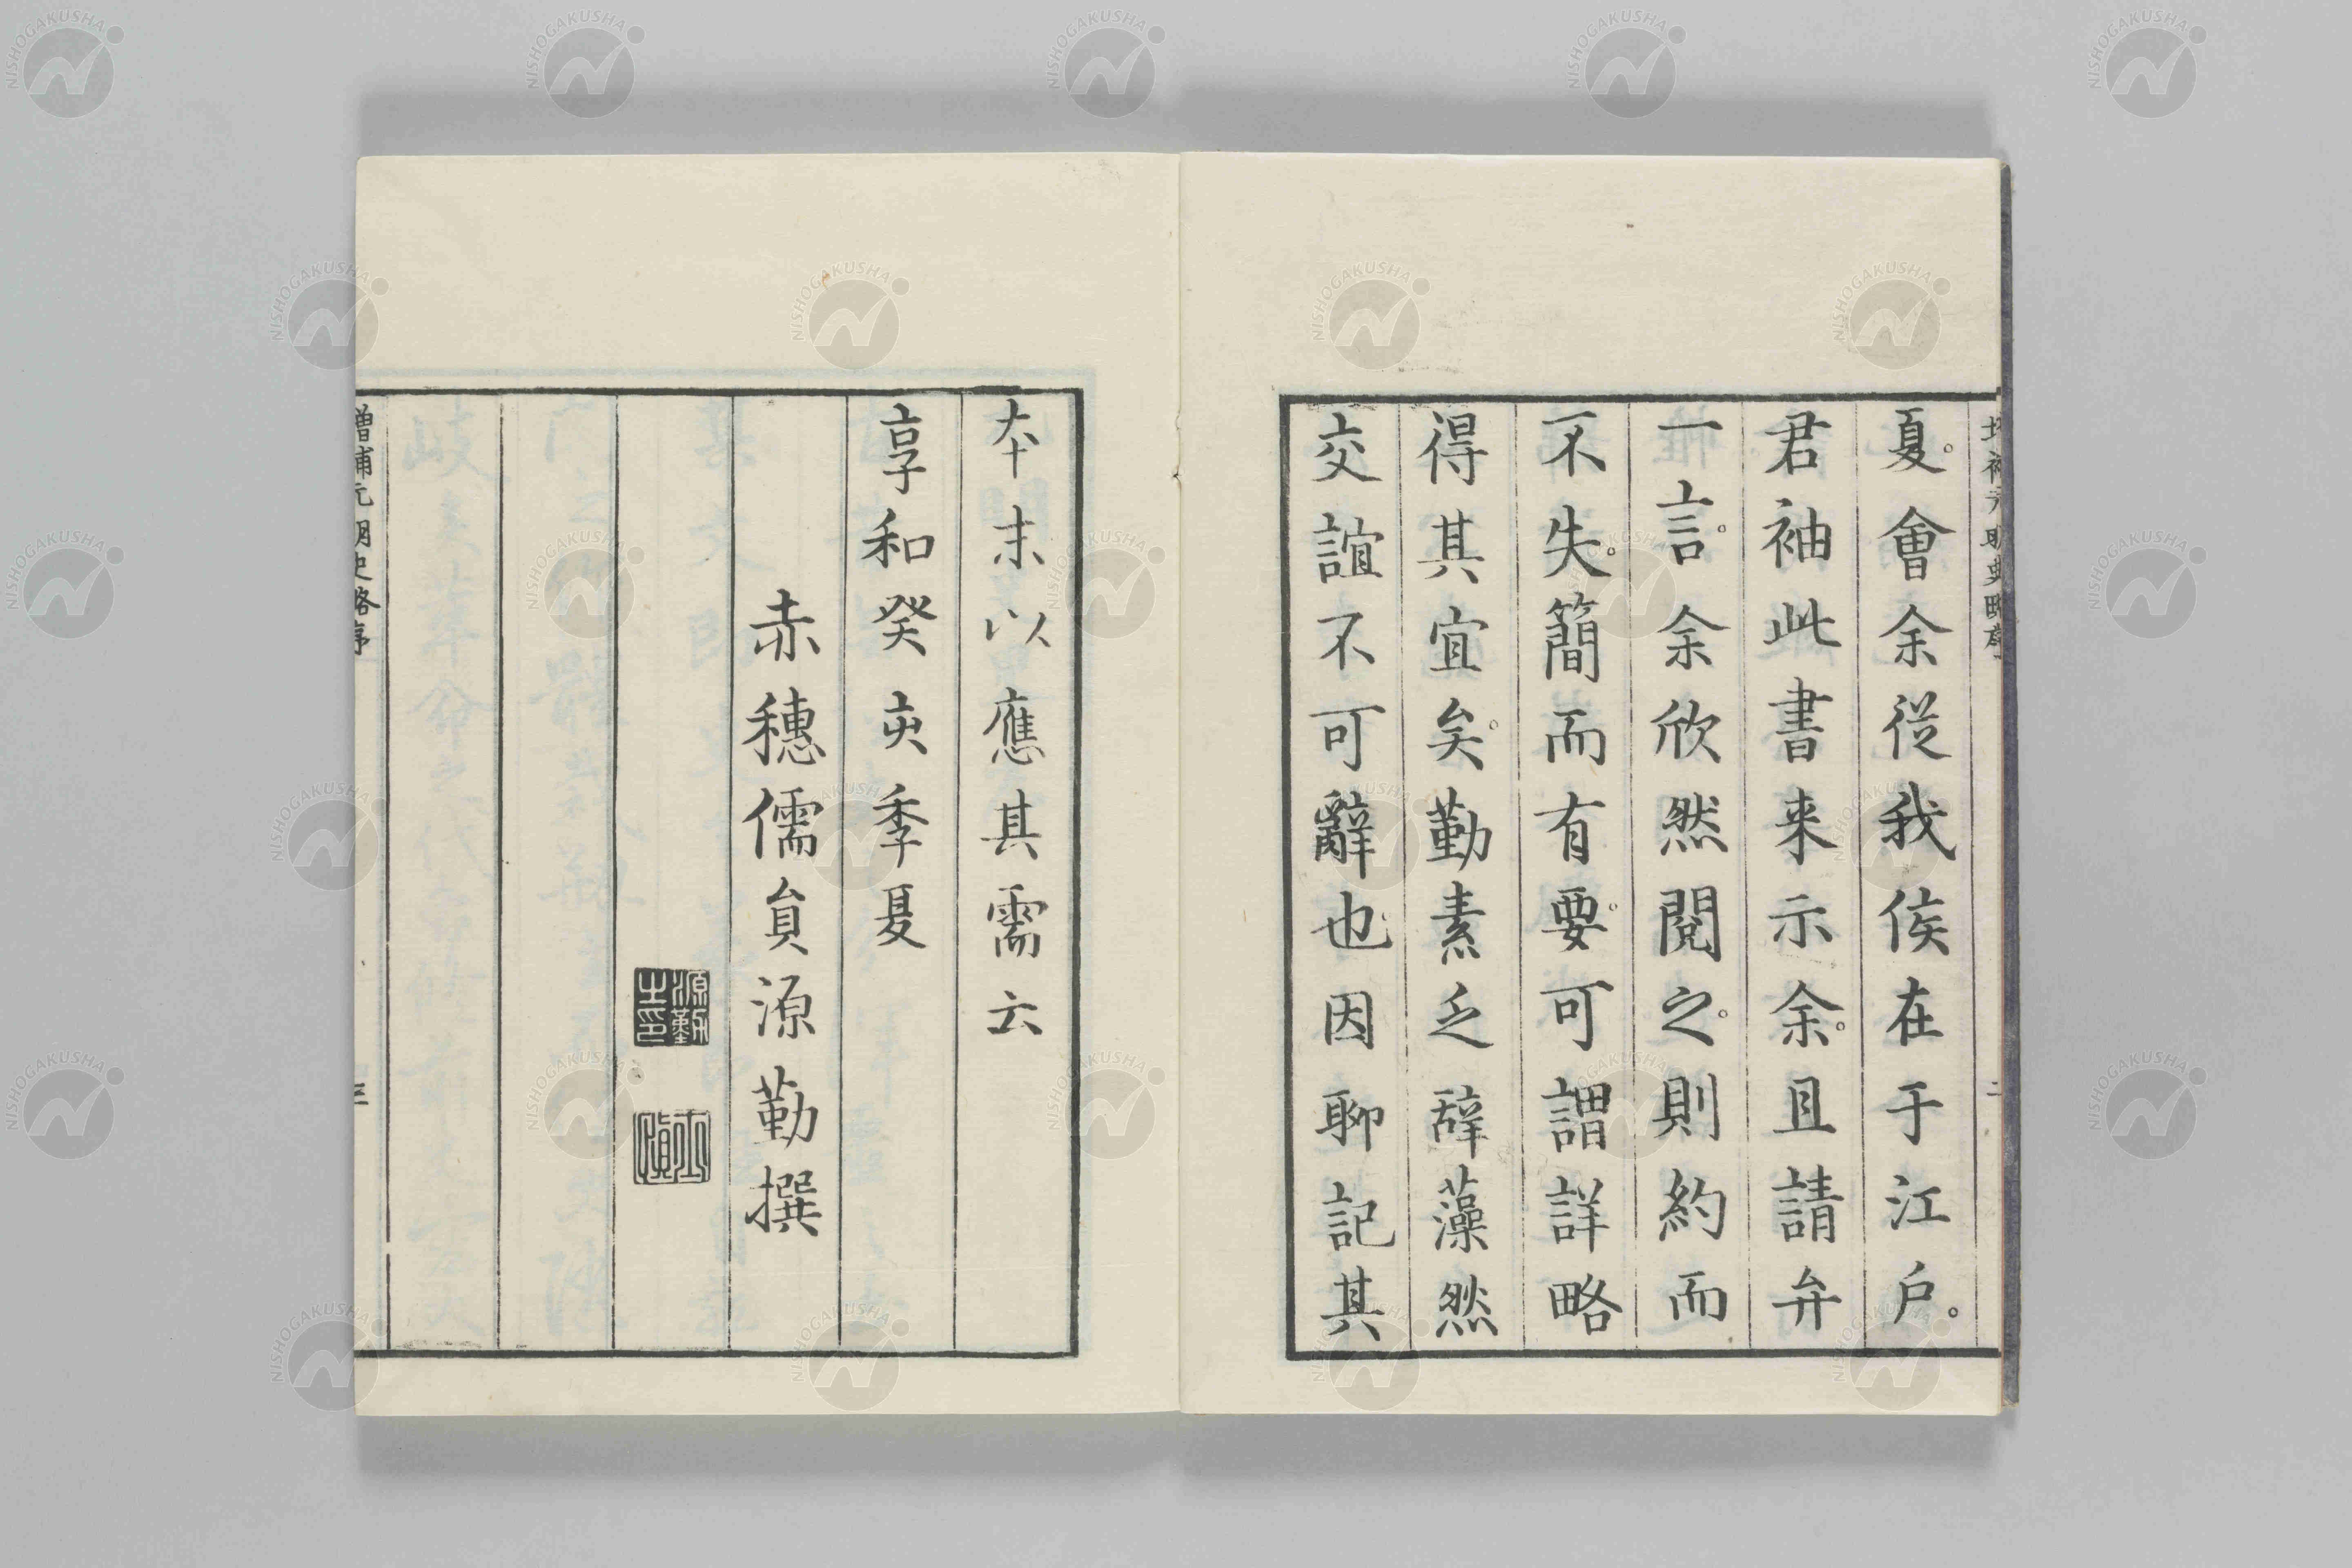 夏。會余従我侯在于江戸。
君袖此書来示余。且請弁
一言。余欣然閲之。則約而
不失。簡而有要。可謂詳略
得其宜矣。勤素乏辭藻然
交誼不可辭也因聊記其
本末以應其需云
享和癸亥季夏
赤穗儒員源勤撰
源勤之印
増補元明史略序
三